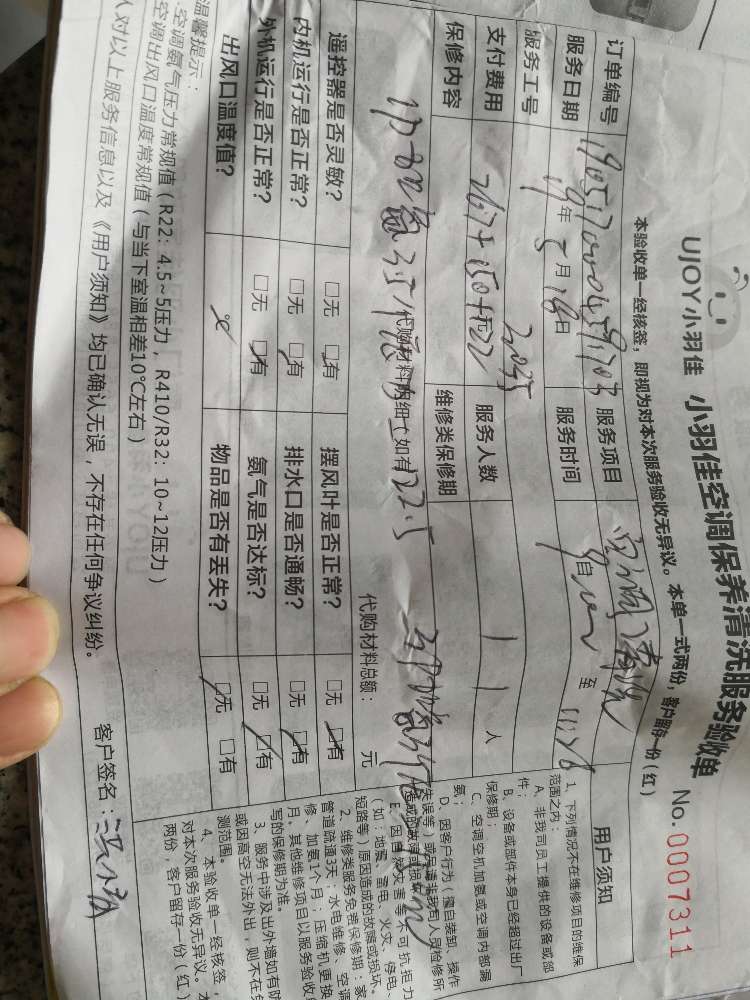 UJOY小羽佳 小羽佳空调保养清洗服务验收单
No.0007311
本验收单一经核签，即视为对本次服务验收无异议。本单一式两份，客户留存一份(红)
订单编号
服务项目 空调清洗
服务日期 19年5月18日
服务时间 自 至
服务工号 2035
支付费用
服务人数 1人
保修内容
维修类保修期
代购材料明细(如有
代购材料总额： 元
遥控器是否灵敏? □无 □有
摆风叶是否正常? □无 □有
内机运行是否正常? □无 □有
排水口是否通畅? □无 □有
外机运行是否正常? □无 □有
氨气是否达标? □无 □有
出风口温度值? ℃
物品是否有丢失? □无 □有
温馨提示：
空调氨气压力常规值(R22：4.5~5压力，R410/R32：10~12压力)
空调出风口温度常规值(与当下室温相差10℃左右)
人对以上服务信息以及《用户须知》均已确认无误，不存在任何争议纠纷。
客户签名：
用户须知
1、下列情况不在维修项目的维保
范围之内：
A、非我司员工提供的设备或部
件；
B、设备或部件本身已经超过出厂
保修期；
C、空调空机加氨或空调内部漏
氨；
D、因客户行为(擅自装卸、操作
失误等)或
造成的故障或损坏
E、因自然灾害等不可抗拒力
(如：地震、雷电、火灾、停电、
短路等)原因造成的故障或损坏。
2、维修类服务免费保修期：家
管道疏通3天；水电维修、空调
修、加氨1个月；压缩机更换
月。其他维修项目以服务验收单
写的保修期为准。
3、服务中涉及出外墙如有防
或因真空无法外出，则不在
测范围。
4、本验收单一经核签，
对本次服务验收无异议。本
两份，客户留存一份(红)